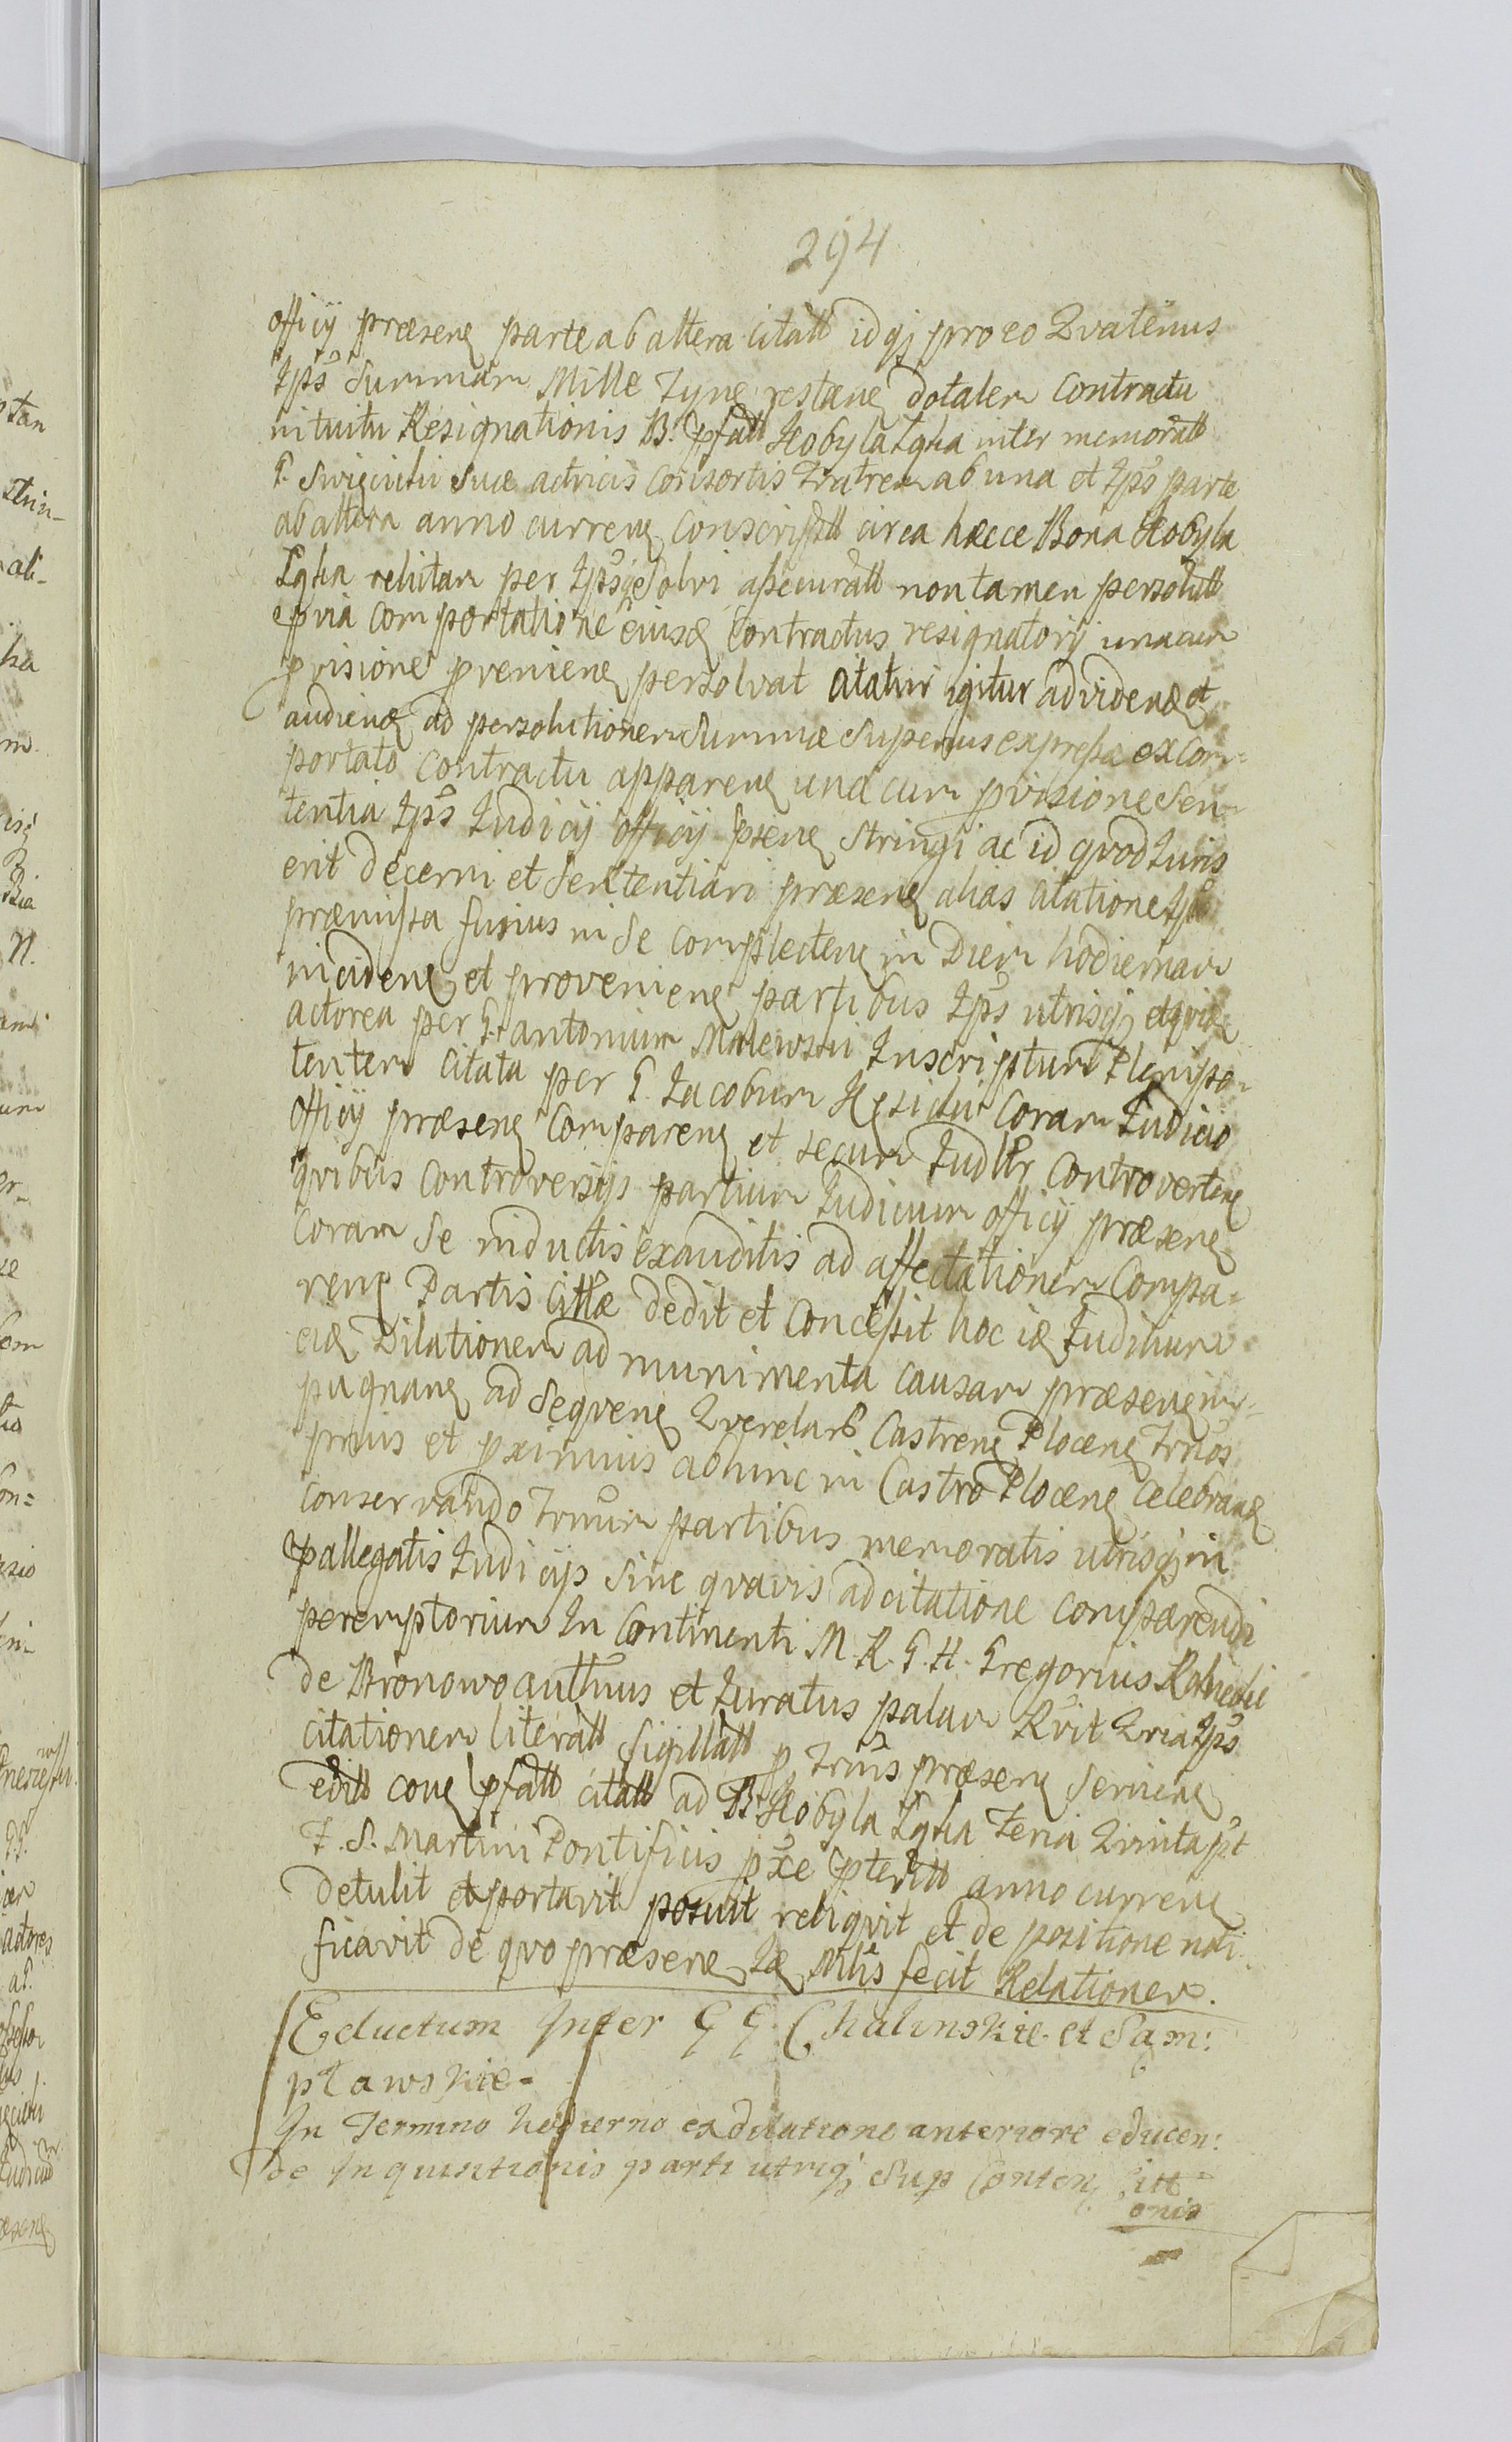 294
officÿ præsenę parte ab altera citatt idqȝ pro eo Qvatenus
Ips summam Mille Tynę restanę dotalem Contractu
intuitu Resignationis B. pfatt Kobyla Łąka inter memoratt
G. Swięcicki suæ actricis Consortis Fratrem ab una et Ips parte
ab altera anno currenę Conscriptt circa hæcce Bona Kobyla
Łąka relictam per Ips Solvi assecuratt non tamen persolutt
prvia Comportatione eiusd Contractus resignatorÿ unacum
pvisione pvenienę persolvat citatur igitur ad videnđ et
audienđ ad persolutionem Summæ superius expressæ ex Com=
portato Contractu apparenę una cum pvisione Sen=
tentia Ips Iudicÿ officÿ psenę stringi ac id qvod Iuris
erit decerni et sententiari præsenę alias citatione Ips
præmissa fusius in se complectenę in Diem hodiernam
incidenę et provenienę partibus Ips utrisqȝ et qvidem
actorea per G. Antonium Malewski Inscriptum Plenipo=
tentem citata per G. Iacobum Kęsicki Coram Iudicio
officÿ præsenę Comparenę et secum Iudllr Controvertenę
qvibus Controversÿs partium Iudicium officÿ præsenę
Coram se inductis exauditis ad affectationem Compa=
renę Partis Cittæ dedit et Concessit hoc id Iudicium
eid Dilationem ad munimenta Causam præsenę im=
pugnanę ad seqvenę Qverelarß Castrenę Plocenę Trnos
primis et pximius adhinc in Castro Plocenę Celebranđ
Conservando Trnum partibus memoratis utrisqȝ in
pallegatis Iudicÿs sine qvavis adcitatione comparendi
peremptorium In Continenti M. R. G. H. Gregorius
de Bronowo authus et Iuratus palam Rvit Qvia Ips
citationem literatt sigillatt p Trnis præsenę Servienę
editt conę pfatt citatt ad B. Kobyla Łąka Feria Qvinta pt
F. S. Martini Pontificis pxe pteritt anno currenę
detulit et portavit posuit reliqvit et de positione noti
ficavit de qvo præsenę Id Mlis fecit Relationem.
Eductum Inter GG Chalinskie et Sam:
pławskie=
In Termino hodierno ex dilatione anteriore educen:
de Inquisitionis parti utriqȝ sup Conten itt
onis